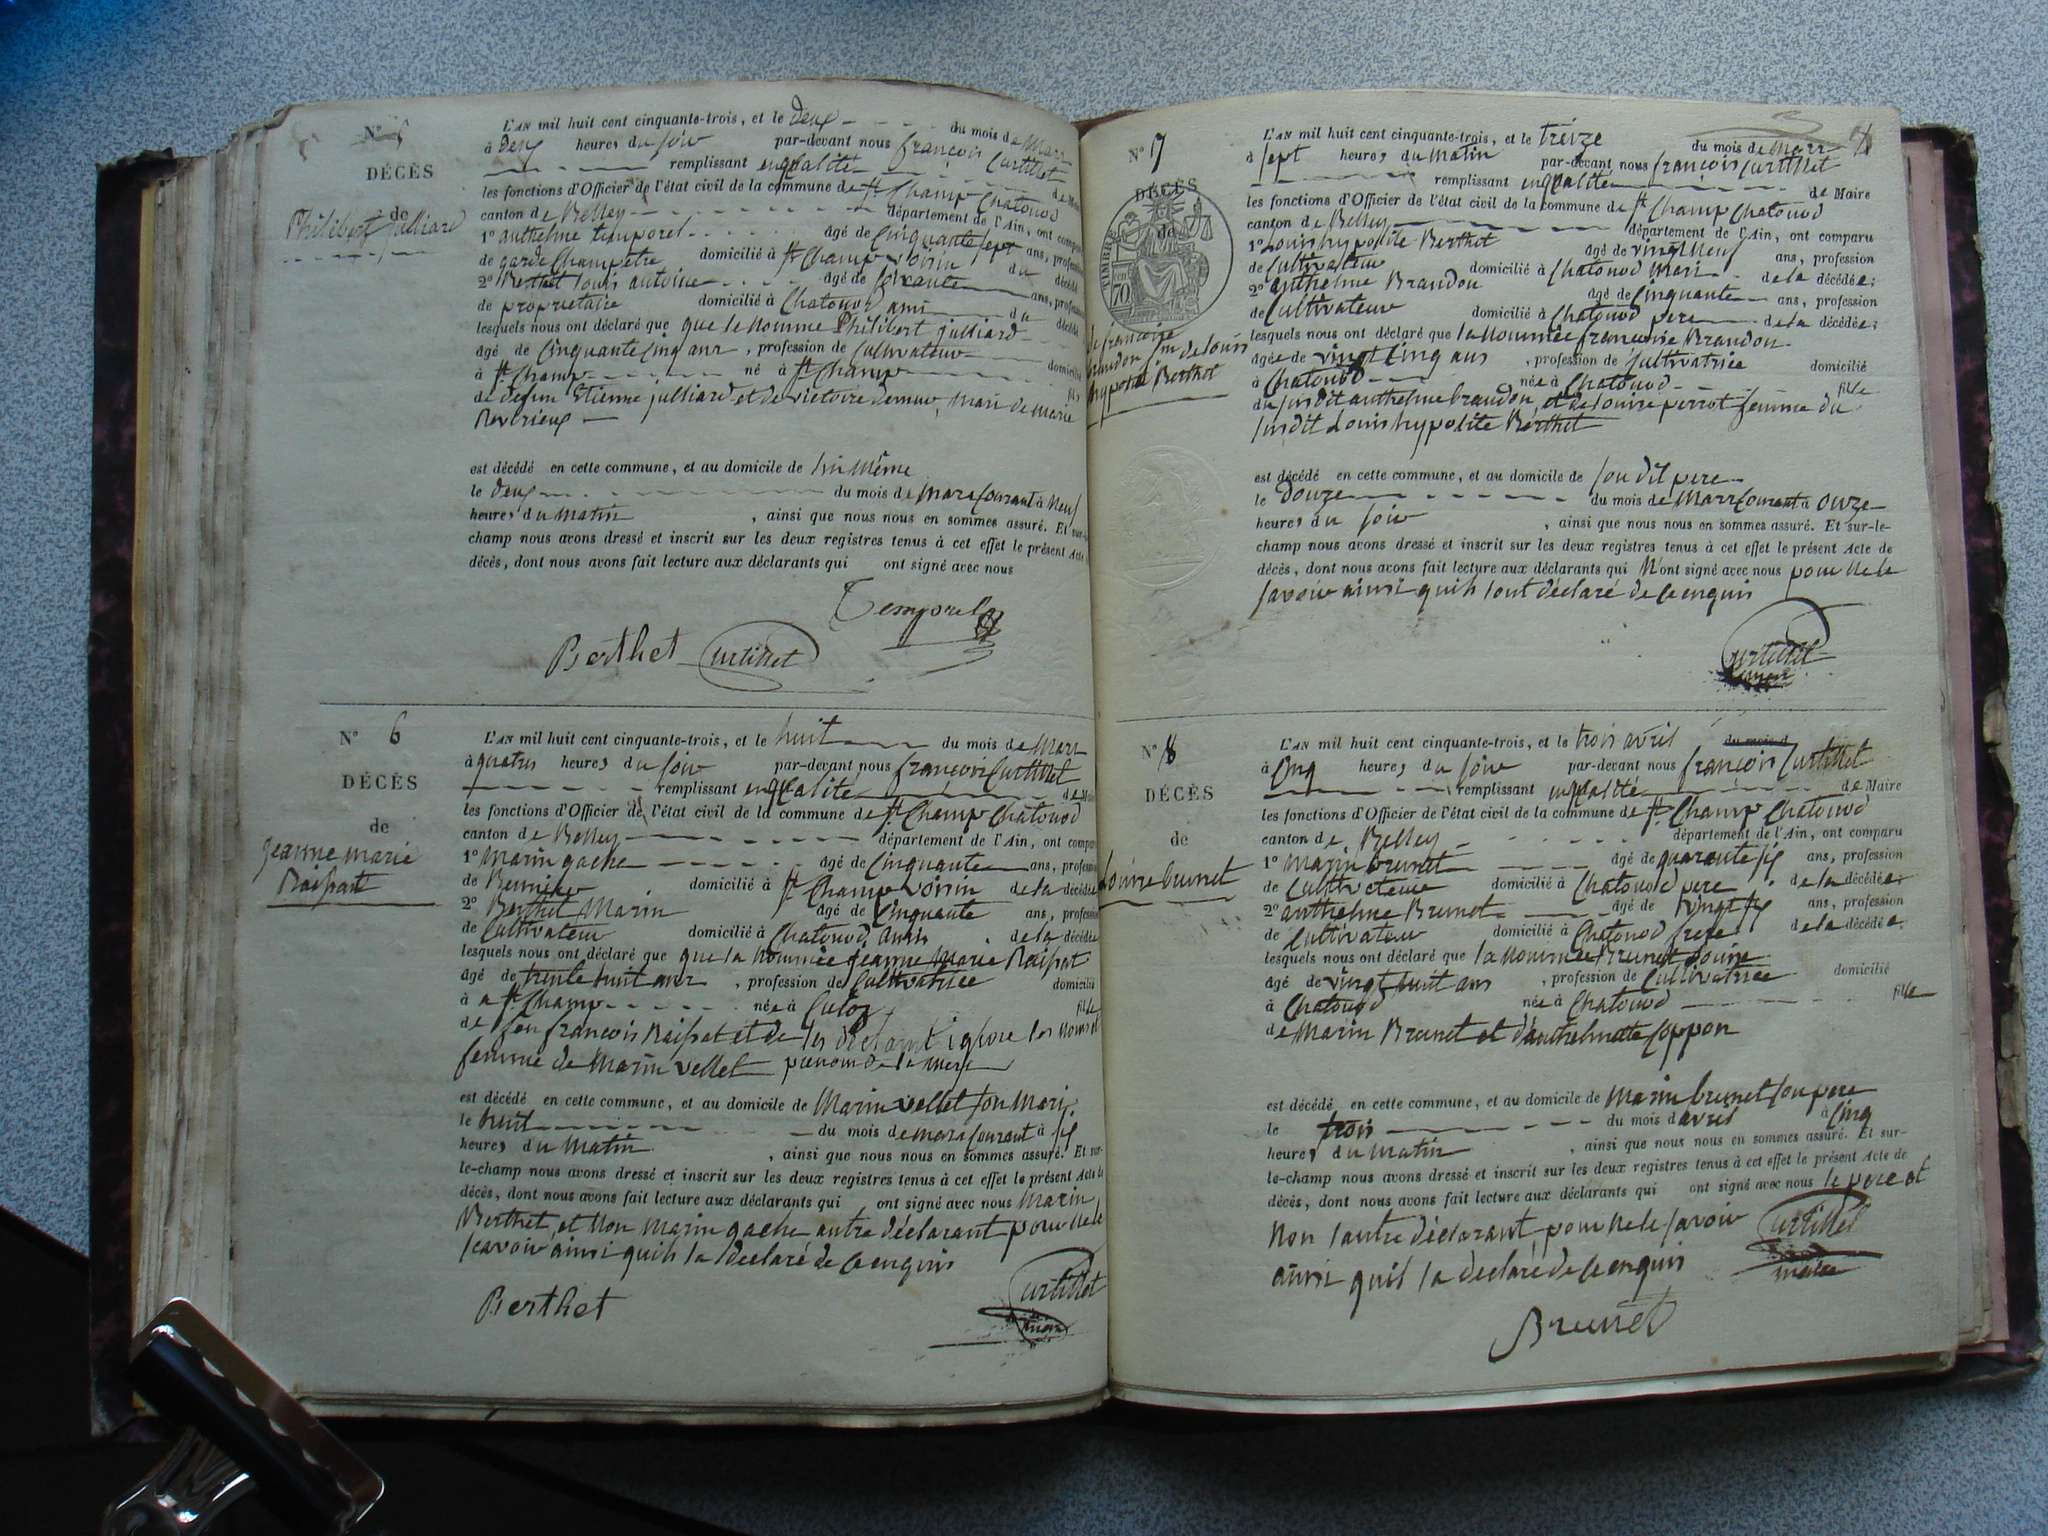 N° 5
DÉCÈS
de
Philibert Julliard
L'AN mil huit cent cinquante-trois, et le Deux du mois de Mars
à Deux heures du soir par-devant nous françois Curtillet
remplissant en qualité de Maire
les fonctions d'Officier de l'état civil de la commune de St Champ Chatonod
canton de Belley département de l'Ain, ont comparu
1° anthelme temporel âgé de Cinquante sept ans, profession
de garde Champêtre domicilié à St Champ voisin du décédé
2° Berthet louis antoine âgé de soixante ans, profession
de propriétaire domicilié à Chatonod ami du décédé
lesquels nous ont déclaré que que le nommé Philibert julliard
âgé de Cinquante Cinq ans, profession de Cultivateur domicilié
à St Champ né à St Champ fils
de defun Etienne julliard et de victoire demur, Mari de marie
Reverieux
est décédé en cette commune, et au domicile de lui même
le deux du mois de mars Courant à Neuf
heures du matin, ainsi que nous nous en sommes assuré. Et sur-le-
champ nous avons dressé et inscrit sur les deux registres tenus à cet effet le présent Acte de
décès, dont nous avons fait lecture aux déclarants qui ont signé avec nous
Temporel
Berthet Curtillet
N° 6
DÉCÈS
de
jeanne marie
Raispat
L'AN mil huit cent cinquante-trois, et le huit du mois de Mars
à quatres heures du soir par-devant nous françois Curtillet
remplissant en qualité de Maire
les fonctions d'Officier de l'état civil de la commune de St Champ Chatonod
canton de Belley département de l'Ain, ont comparu
1° Marin gache âgé de Cinquante ans, profession
de domicilié à St Champ voisin de la décédée
2° Berthet Marin âgé de Cinquante ans, profession
de Cultivateur domicilié à Chatonod, amis de la décédée
lesquels nous ont déclaré que que la nommée jeanne Marie Raispat
âgé de trente huit ans, profession de Cultivatrice domicilié
à a St Champ née à Culoz fille
de feu françois Raispat et de les déclarant ignore les noms et
femme de Marin vellet prenom de la mere
est décédé en cette commune, et au domicile de Marin vellet son Mari
le huit du mois de mars Courant à six
heures du matin, ainsi que nous nous en sommes assuré. Et sur-
le-champ nous avons dressé et inscrit sur les deux registres tenus à cet effet le présent Acte de
décès, dont nous avons fait lecture aux déclarants qui ont signé avec nous Marin
Berthet, et Non Marin gache autre déclarant pour ne le
scavoir ainsi quih la declaré de ce enquis
Berthet Curtillet
maire
N° 7
DÉCÈS
de
TIMBRE
70
de françoise
brandon fme de louis
hypolite Berthet
L'AN mil huit cent cinquante-trois, et le treize du mois de Mars
à sept heures du Matin par-devant nous françois Curtillet
remplissant en qualité de Maire
les fonctions d'Officier de l'état civil de la commune de St Champ Chatonod
canton de Belley département de l'Ain, ont comparu
1° Louis hypolite Berthet âgé de vingt Neuf ans, profession
de Cultivateur domicilié à Chatonod Mari de la décédée;
2° anthelme Brandon âgé de Cinquante ans, profession
de Cultivateur domicilié à Chatonod pere de la décédée;
lesquels nous ont déclaré que la nommée françoise Brandon
âgée de vingt Cinq ans, profession de Cultivatrice domicilié
à Chatonod née à Chatonod fille
du susdit anthelme brandon, et de louise perrot femme du
susdit Louis hypolite Berthet
est décédé en cette commune, et au domicile de son dit pere
le Douze du mois de Mars Courant à Onze
heures du soir, ainsi que nous nous en sommes assuré. Et sur-le-
champ nous avons dressé et inscrit sur les deux registres tenus à cet effet le présent Acte de
décès, dont nous avons fait lecture aux déclarants qui N'ont signé avec nous pour ne le
savoir ainsi quih sont déclaré de ce enquis
Curtillet
maire
N° 8
DÉCÈS
de
Louise brunet
L'AN mil huit cent cinquante-trois, et le trois avril du mois d
à Cinq heures du soir par-devant nous françois Curtillet
remplissant en qualité de Maire
les fonctions d'Officier de l'état civil de la commune de St Champ Chatonod
canton de Belley département de l'Ain, ont comparu
1° Marin brunet âgé de quarante six ans, profession
de Cultivateur domicilié à Chatonod pere de la décédée;
2° anthelme Brunet âgé de vingt six ans, profession
de Cultivateur domicilié à Chatonod frere de la décédée;
lesquels nous ont déclaré que la nommée Brunet Louise
âgé de vingt huit ans, profession de Cultivatrice domicilié
à Chatonod née à Chatonod fille
de Marin Brunet et d'anthelmette Coppon
est décédé en cette commune, et au domicile de Marin brunet son pere
le trois du mois d'avril à Cinq
heures du matin, ainsi que nous nous en sommes assuré. Et sur-
le-champ nous avons dressé et inscrit sur les deux registres tenus à cet effet le présent Acte de
décès, dont nous avons fait lecture aux déclarants qui ont signé avec nous le pere et
Non l'autre déclarant pour ne le savoir Curtillet
ainsi quil la declaré de ce enquis maire
Brunet